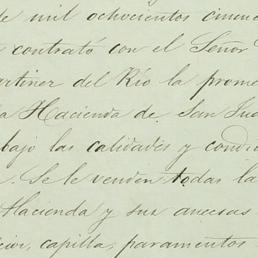 de mil ochocientos cincuen
contrató con el Señor
artinez del Río la prome
a Hacienda de San Jua
bajo las calidades y condi
Se le venden todas la
Hacienda y sus anecsas
capilla, paramentos